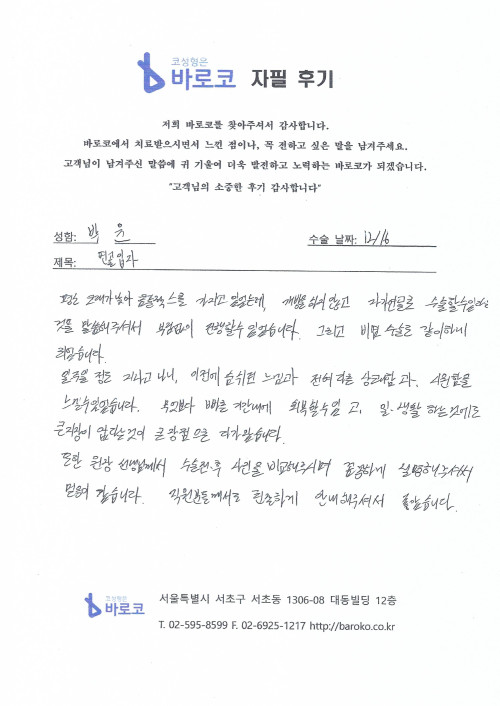 코성형은
바로코 자필 후기
저희 바로코를 찾아주셔서 감사합니다.
바로코에서 치료받으시면서 느낀 점이나, 꼭 전하고 싶은 말을 남겨주세요.
고객님이 남겨주신 말씀에 귀 기울여 더욱 발전하고 노력하는 바로코가 되겠습니다.
"고객님의 소중한 후기 감사합니다"
성함: 박 윤
수술 날짜: 12/16
제목:
평소 코때가 낮아 콤플렉스를 가지고 있었는데, 개방을 하지 않고 자가연골로 수술할수있다는
것을 말씀해주셔서 부담없이 진행할수 있었습니다. 그리고 비염 수술도 같이하니
되었습니다.
일주일 정도 지나고 나니, 이전에 숨쉬면 느낌과 전혀 다른 상쾌함 과, 시원함을
느낄수있었습니다. 무엇보다 빠른 기간내에 회복할수 있고, 일·생활 하는것에도
큰지장이 없다는것이 큰 장점으로 다가왔습니다.
또한 원장 선생님께서 수술전·후 사진을 비교해주시며 꼼꼼하게 설명해주셔서
믿음이 갔습니다. 직원분들께서도 친절하게 안내해주셔서 좋았습니다.
코성형은
바로코
서울특별시 서초구 서초동 1306-08 대동빌딩 12층
T. 02-595-8599 F. 02-6925-1217 http://baroko.co.kr